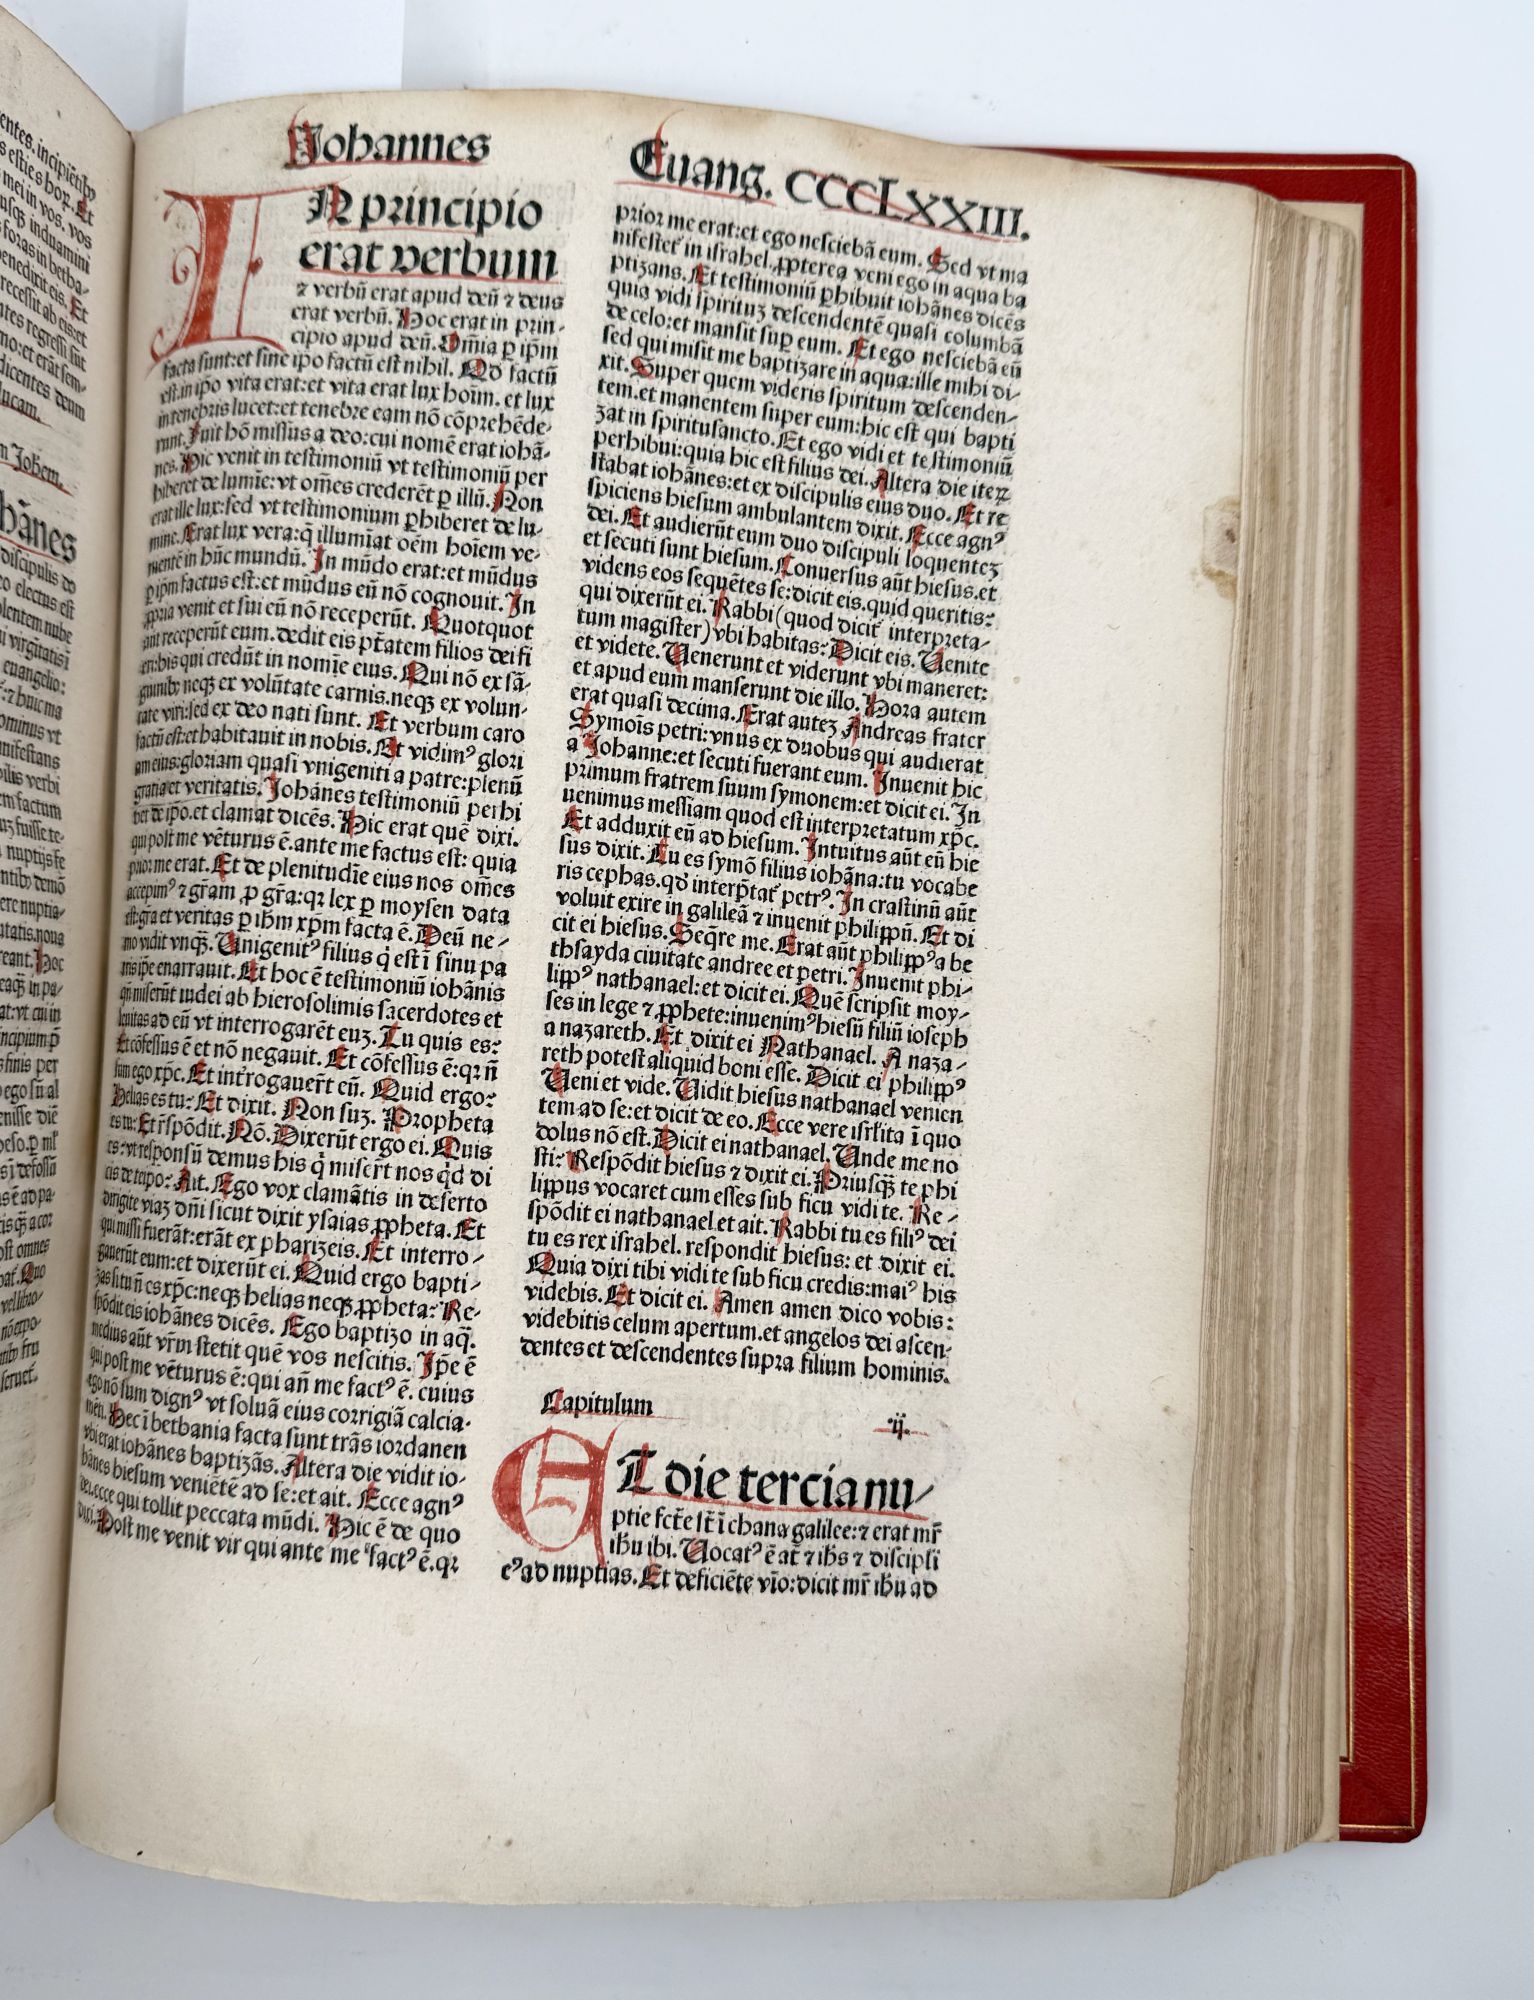 Johannes
Euang. CCCLXXIII.
IN principio
erat verbum
⁊ verbū erat apud deū ⁊ deus
erat verbū. Hoc erat in prin-
cipio apud deū. Om̄ia ꝑ ip̄m
facta sunt: et sine ip̄o factū est nihil. Qd̄ factū
est. in ip̄o vita erat: et vita erat lux hoīm. et lux
in tenebris lucet: et tenebre eam nō cōprehēde-
runt. Fuit hō missus a deo: cui nomē erat iohā-
nes. Hic venit in testimoniū vt testimoniū per
hiberet de lumīe: vt om̄es crederēt ꝑ illū. Non
erat ille lux: sed vt testimonium ꝑhiberet de lu-
mine. Erat lux vera: q̄ illumīat oēm hoīem ve-
nientē in hūc mundū. In mūdo erat: et mūdus
ꝑ ip̄m factus est: et mūdus eū nō cognouit. In
ꝓpria venit et sui eū nō receperūt. Quotquot
aūt receperūt eum. dedit eis p̄tatem filios dei fi
eri: his qui credūt in nomīe eius. Qui nō ex sā-
guinibꝫ neqꝫ ex volūtate carnis. neqꝫ ex volun-
tate viri: sed ex deo nati sunt. Et verbum caro
factū est: et habitauit in nobis. Et vidimꝰ glori
am eius: gloriam quasi vnigeniti a patre: plenū
gratia et veritatis. Johānes testimoniū perhi
bet de ip̄o. et clamat dicēs. Hic erat quē dixi.
qui post me vēturus ē. ante me factus est: quia
prior me erat. Et de plenitudīe eius nos om̄es
accepimꝰ ⁊ gr̄am ꝓ gr̄a: qꝛ lex ꝑ moysen data
est: gr̄a et veritas ꝑ ih̄m xp̄m facta ē. Deū ne-
mo vidit vnqꝫ. Unigenitꝰ filius q̇ est ī sinu pa
tris ip̄e enarrauit. Et hoc ē testimoniū iohānis
qn̄ miserūt iudei ab hierosolimis sacerdotes et
leuitas ad eū vt interrogarēt euꝫ. Tu quis es:
Et cōfessus ē et nō negauit. Et cōfessus ē: qꝛ n̄
sum ego xp̄c. Et int̄rogauer̄t eū. Quid ergo:
Helias es tu: Et dixit. Non suꝫ. Propheta
es tu: Et r̄spōdit. Nō. Dixerūt ergo ei. Quis
es: vt responsū demus his q̇ miser̄t nos q̇d di
cis de teip̄o: Ait. Ego vox clamātis in deserto
dirigite viaꝫ dn̄i sicut dixit ysaias ꝓpheta. Et
qui missi fuerāt: erāt ex pharizeis. Et interro-
gauerūt eum: et dixerūt ei. Quid ergo bapti-
zas si tu n̄ es xp̄c: neqꝫ helias neqꝫ ꝓpheta: Re-
spōdit eis iohānes dicēs. Ego baptizo in aq̄.
medius aūt vr̄m stetit quē vos nescitis. Ip̄e ē
qui post me vēturus ē: qui an̄ me factꝰ ē. cuius
ego nō sum dignꝰ vt soluā eius corrigiā calcia-
mēti. Hec ī bethania facta sunt trās iordanen
vbi erat iohānes baptizās. Altera die vidit io-
hānes hiesum veniētē ad se: et ait. Ecce agnꝰ
dei. ecce qui tollit peccata mūdi. Hic ē de quo
dixi. Post me venit vir qui ante me factꝰ ē. qꝛ
prior me erat: et ego nesciebā eum. Sed vt ma
nifestet̄ in israhel. ꝓpterea veni ego in aqua ba
ptizans. Et testimoniū ꝑhibuit iohānes dicēs
quia vidi spirituꝫ descendentē quasi columbā
de celo: et mansit suꝑ eum. Et ego nesciebā eū
sed qui misit me baptizare in aqua: ille mihi di-
xit. Super quem videris spiritum descenden-
tem. et manentem super eum: hic est qui bapti
zat in spiritusancto. Et ego vidi et testimoniū
perhibui: quia hic est filius dei. Altera die iteꝝ
stabat iohānes: et ex discipulis eius duo. Et re
spiciens hiesum ambulantem dixit. Ecce agnꝰ
dei. Et audierūt eum duo discipuli loquenteꝫ
et secuti sunt hiesum. Conuersus aūt hiesus. et
videns eos sequētes se: dicit eis. quid queritis:
qui dixerūt ei. Rabbi (quod dicit̄ interpreta-
tum magister) vbi habitas: Dicit eis. Uenite
et videte. Uenerunt et viderunt vbi maneret:
et apud eum manserunt die illo. Hora autem
erat quasi decima. Erat auteꝫ Andreas frater
Symoīs petri: vnus ex duobus qui audierat
a Johanne: et secuti fuerant eum. Inuenit hic
primum fratrem suum symonem: et dicit ei. In
uenimus messiam quod est interpretatum xp̄c.
Et adduxit eū ad hiesum. Intuitus aūt eū hie
sus dixit. Tu es symō filius iohāna: tu vocabe
ris cephas. qd̄ interp̄tat̄ petrꝰ. In crastinū aūt
voluit exire in galileā ⁊ inuenit philippū. Et di
cit ei hiesus. Seq̄re me. Erat aūt philippꝰ a be
thsayda ciuitate andree et petri. Inuenit phi-
lippꝰ nathanael: et dicit ei. Quē scripsit moy-
ses in lege ⁊ ꝓphete: inuenimꝰ hiesū filiū ioseph
a nazareth. Et dixit ei Nathanael. A naza-
reth potest aliquid boni esse. Dicit ei philippꝰ
Ueni et vide. Uidit hiesus nathanael venien
tem ad se: et dicit de eo. Ecce vere isrl̄ita ī quo
dolus nō est. Dicit ei nathanael. Unde me no
sti: Respōdit hiesus ⁊ dixit ei. Priusqꝫ te phi
lippus vocaret cum esses sub ficu vidi te. Re-
spōdit ei nathanael et ait. Rabbi tu es filiꝰ dei
tu es rex israhel. respondit hiesus: et dixit ei.
Quia dixi tibi vidi te sub ficu credis: maiꝰ his
videbis. Et dicit ei. Amen amen dico vobis:
videbitis celum apertum. et angelos dei ascen-
dentes et descendentes supra filium hominis.
Capitulum .ij.
ET die tercia nu-
ptie fct̄e st̄ ī chana galilee: ⁊ erat mr̄
ih̄u ibi. Uocatꝰ ē at̄ ⁊ ih̄s ⁊ discipli
eꝰ ad nuptias. Et deficiēte vīo: dicit mr̄ ih̄u ad